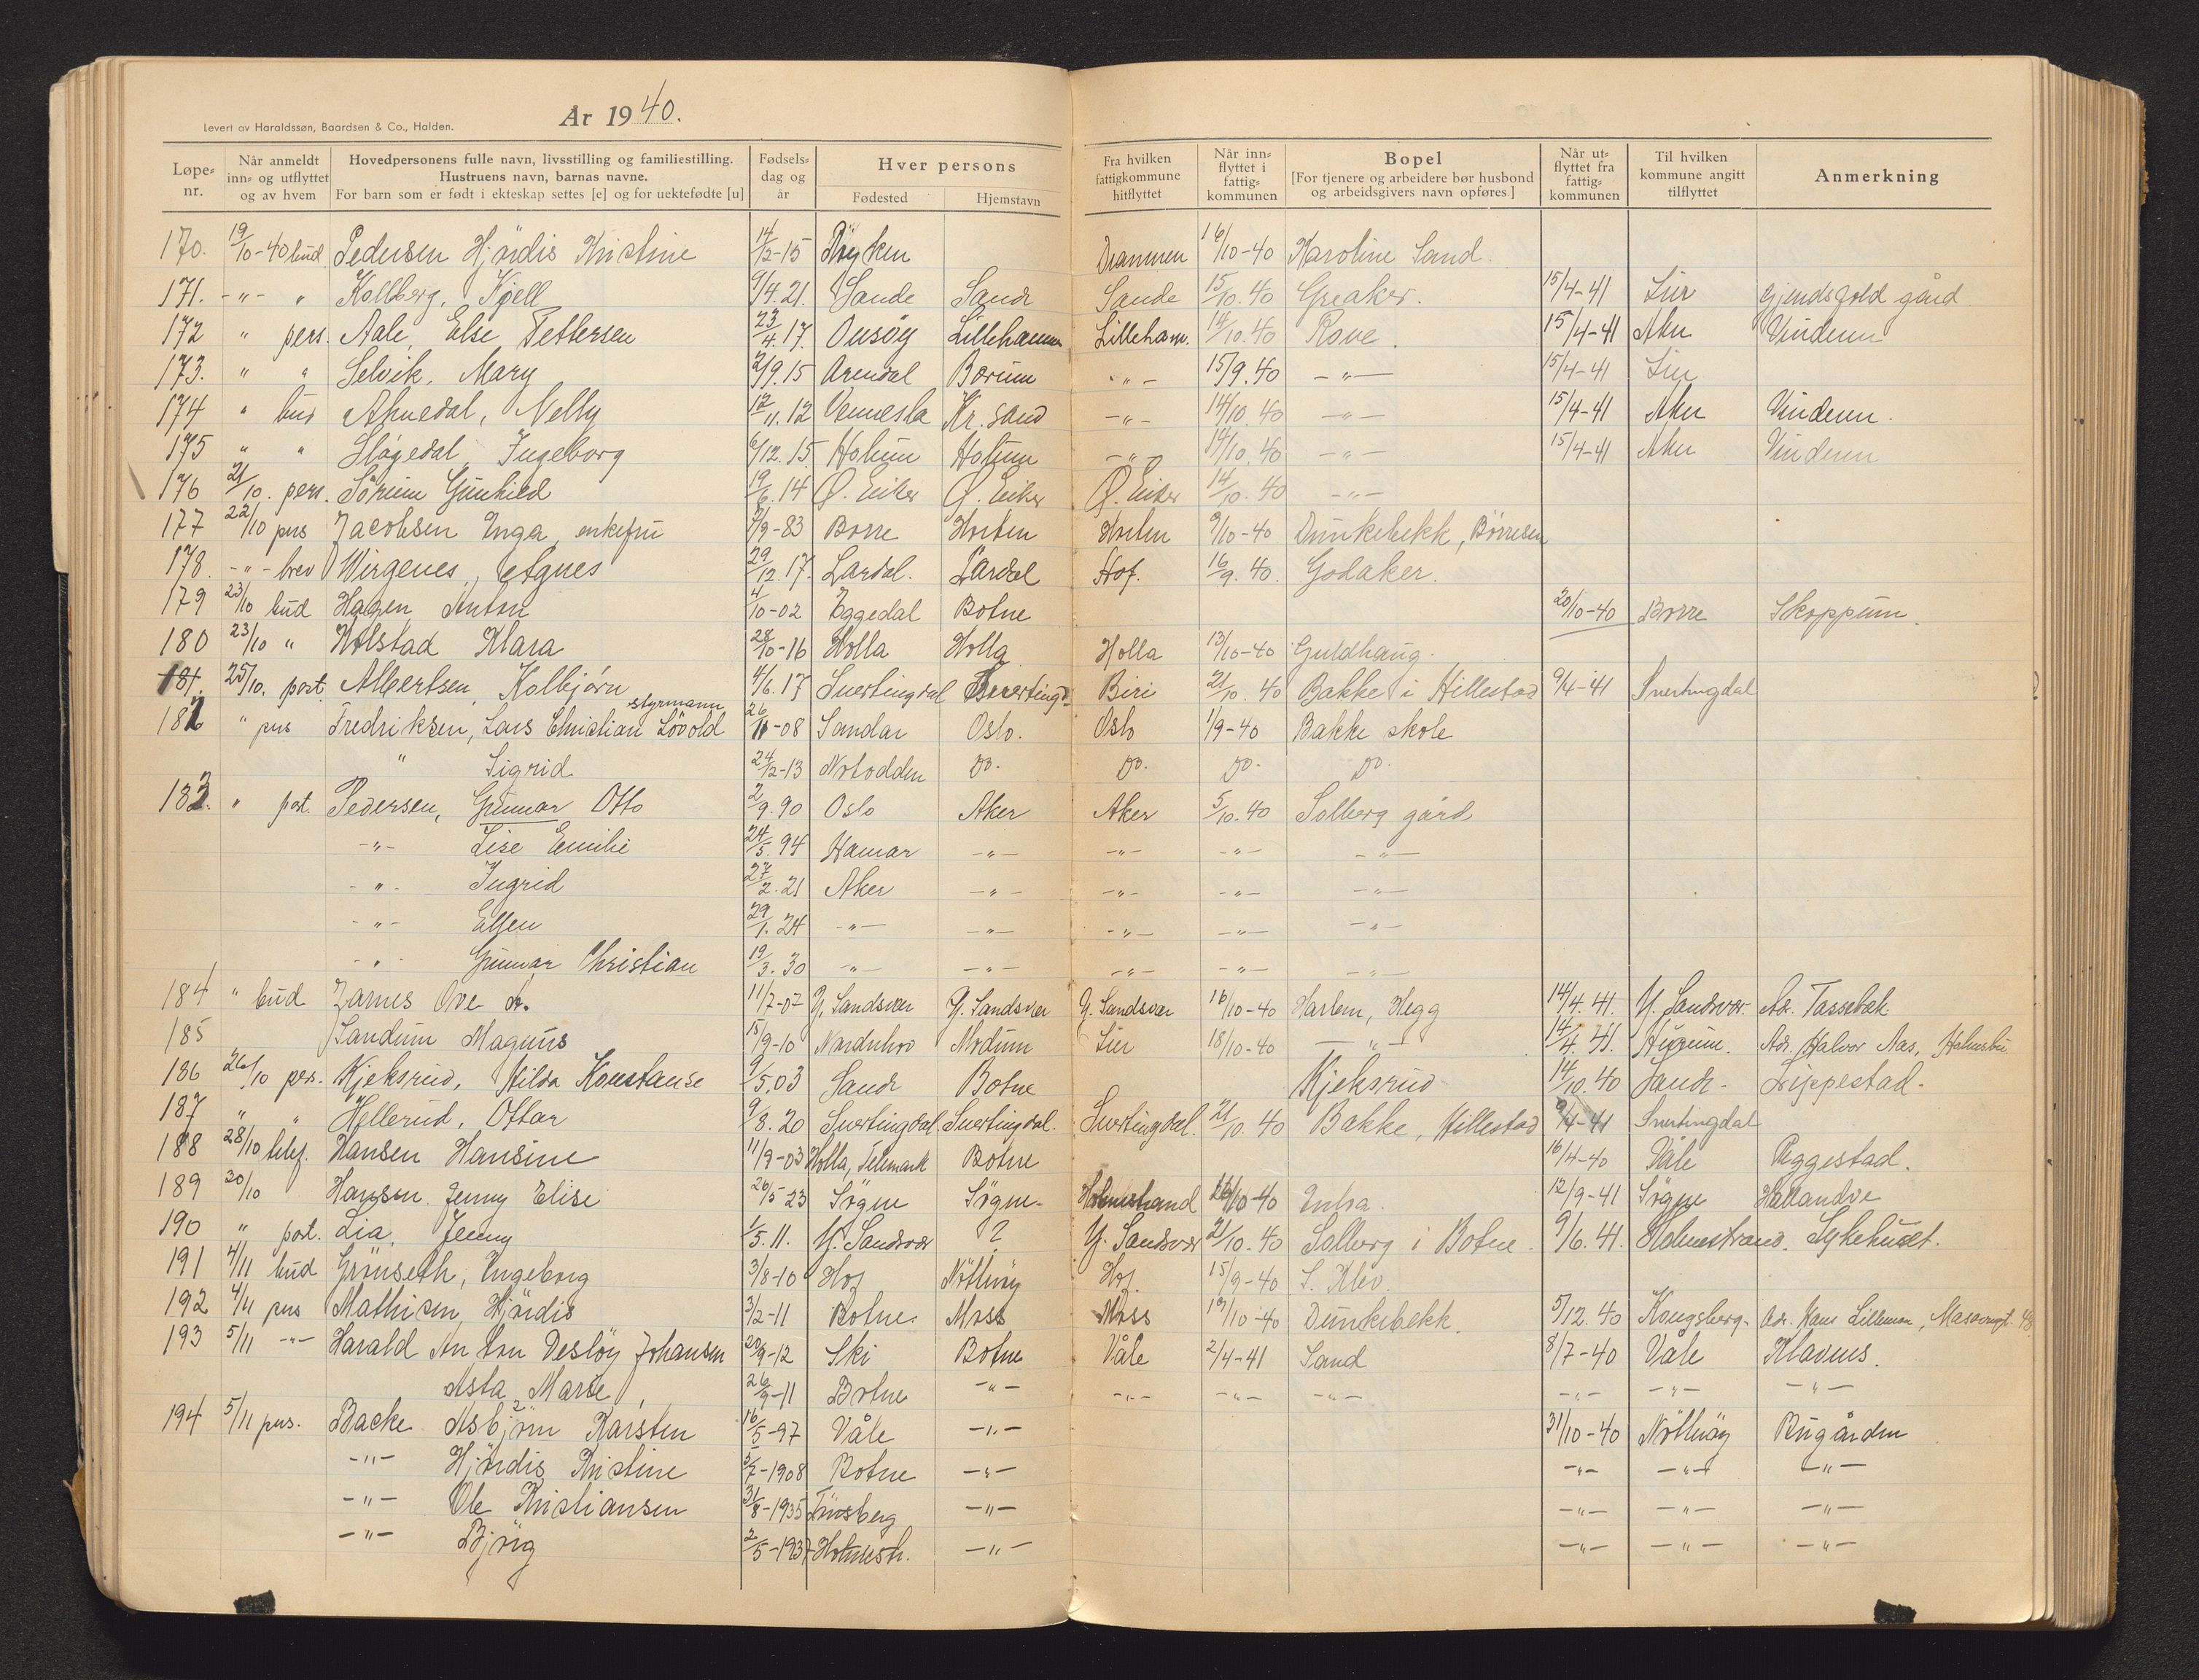 År 1940.
Levert av Haraldssøn, Baardsen & Co., Halden.
Løpe-nr. Når anmeldt inn- og utflyttet og av hvem Hovedpersonens fulle navn, livsstilling og familiestilling. Hustruens navn, barnas navne. For barn som er født i ekteskap settes [e] og for uektefødte [u] Fødsels-dag og år Hver persons Fødested Hjemstavn Fra hvilken fattigkommune hitflyttet Når inn-flyttet i fattig-kommunen Bopel [For tjenere og arbeidere bør husbond og arbeidsgivers navn opføres] Når ut-flyttet fra fattig-kommunen Til hvilken kommune angitt tilflyttet Anmerkning
170. 19/10-40 bud Pedersen Hjördis Kristine 14/2-15 Røyken Drammen 16/10-40 Karoline Sand.
171. -"- " Kollberg, Kjell 9/4.21. Sande Sande Sande 15/10.40 Greaker. 15/4-41 Lier gård
172 " pers. Aale, Else Pettersen 23/4.17. Onsøy Lillehammer Lilleham. 14/10.40 Rove. 15/4-41 Aker Vinderen
173. " " Selvik, Mary 2/9.15 Arendal Bærum -"- 15/9.40 -"- 15/4-41 Lier
174 " bud Nelly 12/11.12 Vennesla Kr.sand -"- 14/10.40 -"- 15/4-41 Aker Vinderen.
175 " " Slågedal, Ingeborg 6/12.15 Holum Holum -"- 14/10.40 -"- 15/4-41 Aker Vinderen
176 21/10. pers. Sörum Gunhild 19/6.14 Ø. Eiker Ø. Eiker Ø. Eiker 14/10.40 -"-
177 22/10 pers Jacobsen Inga, enkefru 7/9-83 Borre Horten Horten 9/10-40 Dunkebekk, Børresen
178. -"- brev Wirgenes, Agnes 29/12.17. Lardal. Lardal Hof. 16/9.40. Godaker.
179 23/10 bud Hagen Anton 4/10-02 Eggedal Botne 20/10-40 Borre Skoppum.
180 23/10 " Holstad Klara 28/10-16 Holla Holla Holla 13/10-40 Guldhaug.
181. 25/10. post Albertsen, Kolbjørn 4/6.17 Snertingdal Snertingd. Biri 21/10.40 Bakke i Hillestad 9/4-41 Snertingdal
182 " pers Fredriksen, Lars Christian Lövold styrmann 26/11-08 Sandar Oslo. Oslo 1/9-40 Bakke skole
" Sigrid 24/12-13 Notodden Do. Do. Do. Do.
183. " post. Pedersen, Gunnar Otto 2/9.90 Oslo Aker Aker 5/10.40 Solberg gård
-"- Lise Emilie 24/5.94 Hamar -"- -"- -"- -"-
-"- Ingrid 27/2.21 Aker -"- -"- -"- -"-
-"- Ellen 29/1.24 -"- -"- -"- -"- -"-
-"- Gunnar Christian 19/3.30 -"- -"- -"- -"- -"-
184 " bud Ove 11/7-07 Y. Sandsvær Y. Sandsvær Y. Sandsvær 16/10-40 Harlem, Hegg 14/4.41. Y. Sandsvær. Adr. Tassebæk
185 Sandum Magnus 15/9-10 Modum Lier 18/10-40 -"- 14/4.41. Hurum. Adr. Halvor Aas, Holmsbu
186 26/10 pers. Kjeksrud, Hilda Konstanse 9/5.03 Sande Botne Kjeksrud 14/10.40 Sande. Lippestad.
187 " " Hellerud, Ottar 9/8.20 Snertingdal Snertingdal. Snertingdal. 21/10.40 Bakke, Hillestad 9/4-41 Snertingdal
188 28/10 telef. Hansen Hansine 11/9-03 Holla, Telemark Botne 16/4-40 Våle Reggestad.
189 30/10 Hansen Jenny Elise 26/5-23 Søgne Søgne. Holmestrand 26/10-40 12/9-41 Søgne
190 " post. Lia, Jenny 1/5.11. Y. Sandsvær ? Y. Sandsvær 21/10.40 Solberg i Botne. 9/6.41. Holmestrand. Sykehuset.
191 4/11 bud Grönseth, Ingeborg 3/8-10 Hof Nötteröy Hof. 15/9-40 S. Klev.
192 4/11 pers Mathisen, Hjördis 3/2-11 Botne. Moss Moss 19/10-40 Dunkebekk. 5/12.40 Kongsberg. Adr. Hans
193 5/11 -"- Harald Anton Desløy Johansen 20/9-12 Ski Botne Våle 2/4-41 Sand 8/7-40 Våle Klavenes.
Asta Marie, 26/9-11 Botne -"- -"- -"- -"- -"- -"- -"-
194 5/11 pers. Backe Asbjörn Karsten 16/5-97 Våle -"- 31/10-40 Nötteröy Bugården
-"- Hjördis Kristine 5/7-1908 Botne -"- -"- -"- -"-
-"- Ole Kristiansen 31/8-1935 Tønsberg -"- -"- -"- -"-
-"- Björg 2/5-1937 Holmestr. -"- -"- -"- -"-